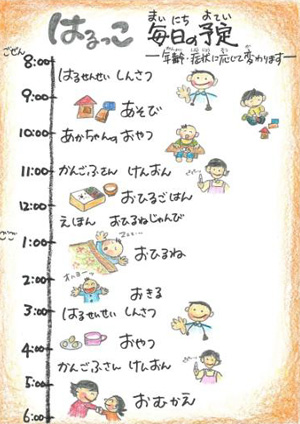 はるっこ 毎日の予定
まい にち よてい
―年齢・症状に応じて変わります―
ごぜん
8:00
はるせんせい しんさつ
9:00
あそび
10:00
あかちゃんの おやつ
11:00
かんごふさん けんおん
おひるごはん
12:00
えほん おひるねじゅんび
ごご
1:00
おひるね
2:00
おきる
3:00
はるせんせい しんさつ
おやつ
4:00
かんごふさん けんおん
5:00
おむかえ
6:00